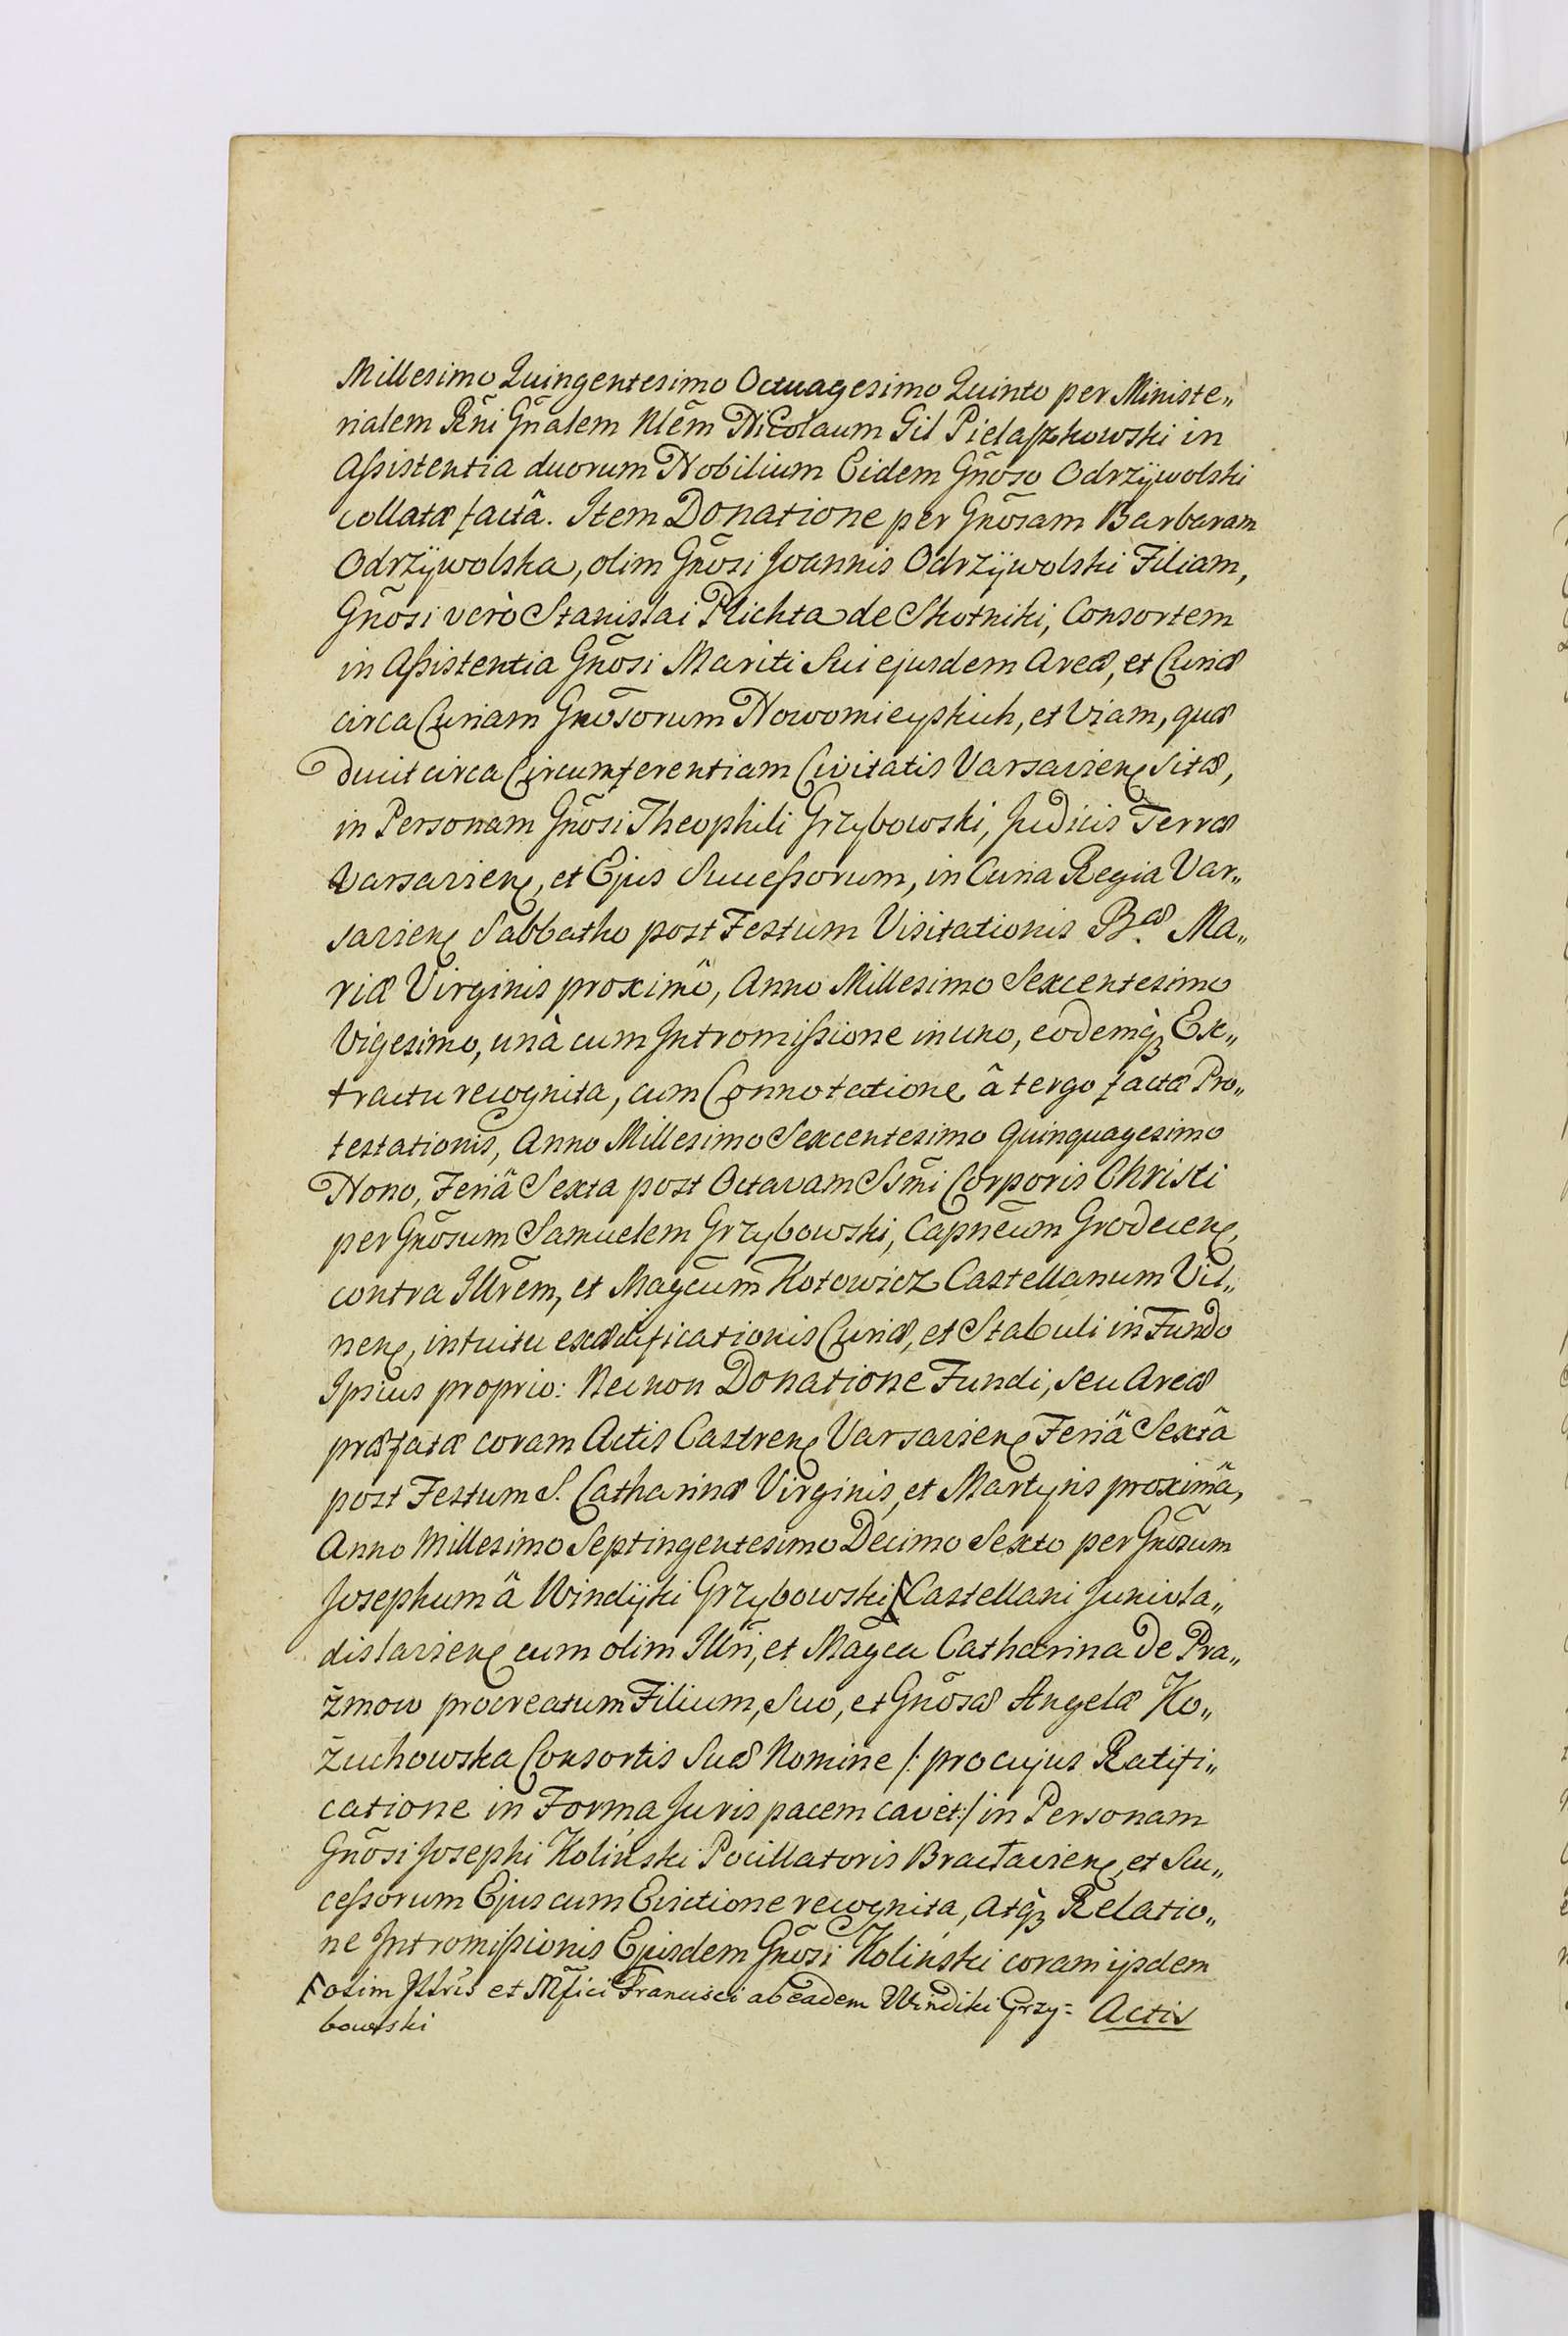 Millesimo Quingentesimo Octuagesimo Quinto per Ministe„
rialem Rñi Gñalem Nlem Nicolaum Gil Pielaszkowski in
Assistentia duorum Nobilium Eidem Gnõso Odrzÿwolski
collatæ factâ. Item Donatione per Gnõsam Barbaram
Odrzÿwolska, olim Gnõsi Joannis Odrzÿwolski Filiam,
Gnõsi verò Stanislai Plichta de Skotniki, Consortem
in Assistentia Gnõsi Mariti Sui ejusdem Areæ, et Curiæ
circa Curiam Gnõsorum Nowomieyskich, et Viam, quæ
ducit circa Circumferentiam Civitatis Varsavien sitæ,
in Personam Gnõsi Theophili Grzybowski, Judicis Terræ
Varsavien, et Ejus Successorum, in Curia Regia Var„
savien Sabbatho post Festum Visitationis B.æ Ma„
riæ Virginis proximô, Anno Millesimo Sexcentesimo
Vigesimo, unà cum Intromissione in uno, eodemq₃ Ex„
tractu recognita, cum Connotatione â tergo factæ Pro„
testationis, Anno Millesimo Sexcentesimo Quinquagesimo
Nono, Feriâ Sexta post Octavam Ssmi Corporis Christi
per Gnõsum Samuelem Grzybowski, Capneum Grodecen,
contra Illrem, et Magcum Kotowicz Castellanum Vil„
nen, intuitu exædificationis Curiæ, et Stabuli in Fundo
Ipsius proprio: Necnon Donatione Fundi, seu Areæ
præfatæ coram Actis Castren Varsavien Feriâ Sextâ
post Festum S. Catharinæ Virginis, et Martyris proximâ,
Anno Millesimo Septingentesimo Decimo Sexto per Gnõsum
Josephum â Windÿki Grzybowski ⌈ Castellani Junivla„
dislavien cum olim Illri, et Magca Catharina de Pra„
żmow procreatum Filium, Suo, et Gnõsæ Angelæ Ko„
żuchowska Consortis Suæ Nomine /: pro cujus Ratifi„
catione in Forma Juris pacem cavet :/ in Personam
Gnõsi Josephi Koliński Pocillatoris Bractavien, et Suc„
cessorum Ejus cum Evictione recognita, Atq₃ Relatio„
ne Intromissionis Ejusdem Gnõsi Koliński coram ijsdem
⌈ olim Jllris et Mfici Francisci ab eadem Windiki Grzy= Actis
bowski